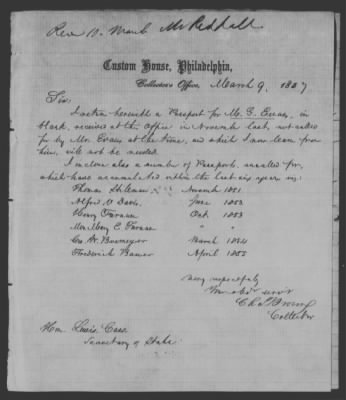 Custom House, Philadelphia,
Collector's Office, March 9, 1857
Sir:
I return herewith a Passport for Mr. G. Evans, in
blank, received at this Office in November last, not called
for by Mr. Evans at the time, and which I now learn from
him, will not be needed.
I inclose also a number of Passports, uncalled for,
which have accumulated within the last six years viz:
Thomas November 1851
Alfred Davis. June 1853
Henry Oct. 1853
Mrs. Mary C. " "
Geo. W. March 1854
Frederick April 1855
Very respectfully
Your obdt servt
Collector
Hon. Lewis Cass
Secretary of State